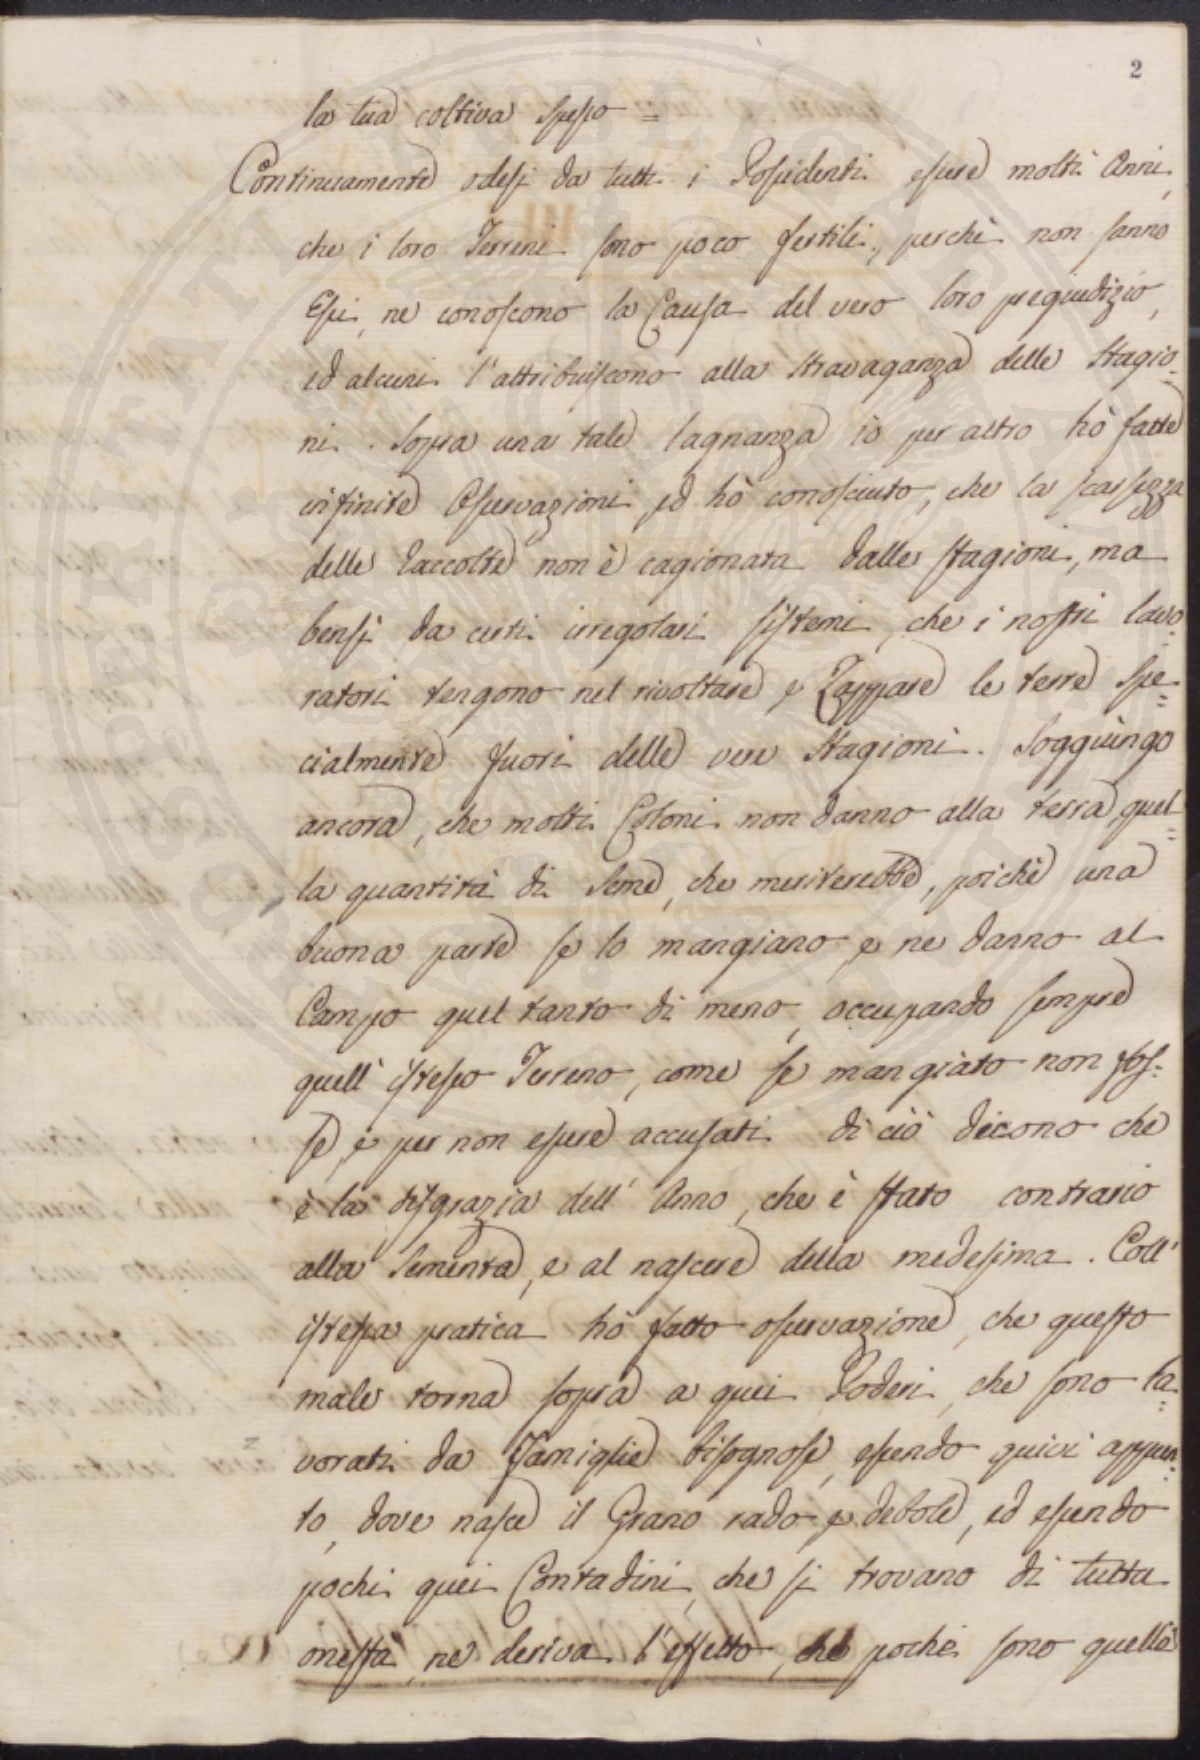 2
la tua coltiva spesso =
Continuamente odesi da tutti i Possidenti essere molti Anni,
che i loro Terreni sono poco fertili, perchè non sanno
Essi, ne conoscono la Causa del vero loro pregiudizio,
ed alcuni l'attribuiscono alla stravaganza delle Stagio-
ni. Sopra una tale lagnanza io per altro hò fatte
infinite Osservazioni, ed hò conosciuto, che la scarsezza
delle Raccolte non è cagionata dalle stagioni, ma
bensì da certi irregolari sistemi, che i nostri lavo=
ratori tengono nel rivoltare, e Zappare le terre spe=
cialmente fuori delle vere Stagioni. Soggiungo
ancora, che molti Coloni non danno alla terra quel=
la quantità di Seme, che meriterebbe, poichè una
buona parte se lo mangiano, e ne danno al
Campo quel tanto di meno, occupando sempre
quell'istesso Terreno, come se mangiato non fos=
se, e per non essere accusati di ciò dicono che
è la disgrazia dell'Anno, che è stato contrario
alla Sementa, e al nascere della medesima. Coll'
istessa pratica hò fatto osservazione, che questo
male torna sopra a quei Poderi, che sono la=
vorati da Famiglie bisognose, essendo quivi appun=
to, dove nasce il Grano rado, e debole, ed essendo
pochi quei Contadini, che si trovano di tutta
onestà, ne deriva l'effetto, che pochi sono quelle